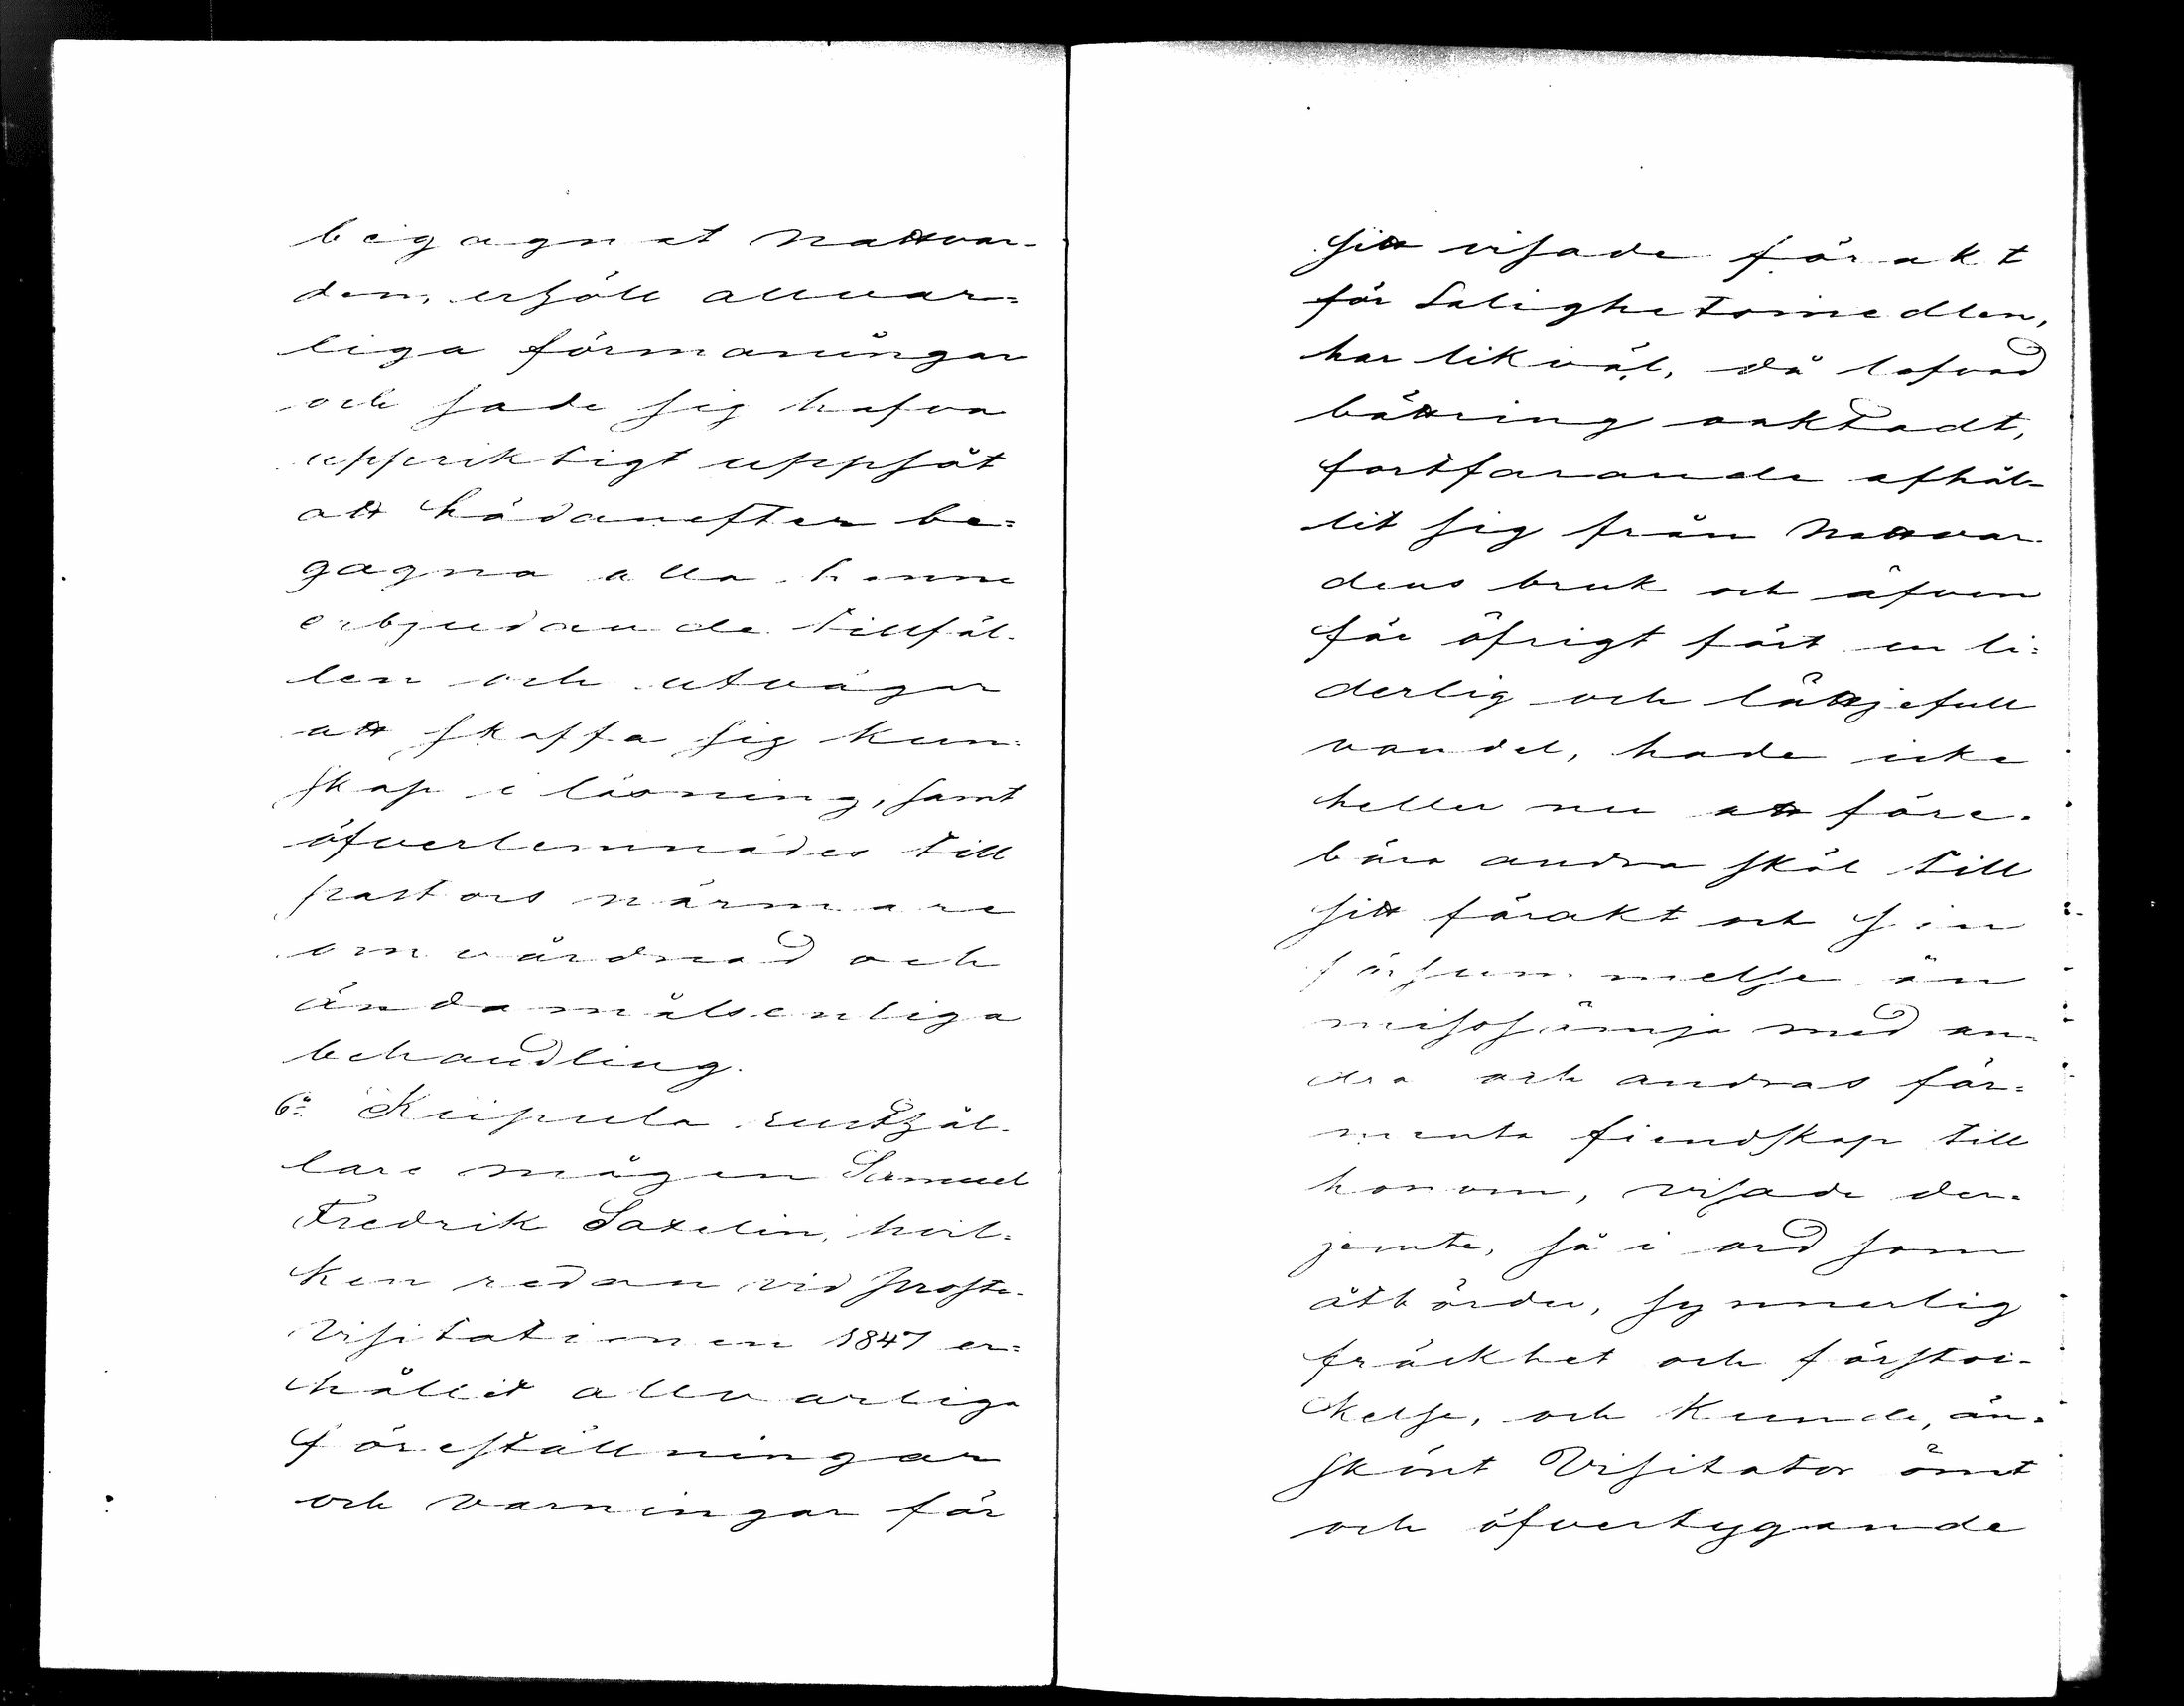 begagnat nattvar-
den, erhöll allvar=
liga förmaningar
och sade sig hafva
uppriktigt uppsåt
att hädanefter be=
gagna alla henne
erbjudande tillfäl-
len och utvägar
att skaffa sig kun=
skap i läsning, samt
öfverlemnades till
pastors närmare
omvårdnad och
ändamålsenliga
behandling.
6:o Kiipula rusthål-
lare mågen Samuel
Fredrik Saxelin, hvil-
ken redan vid proste-
Visitationen 1847 er=
hållit allvarliga
föreställningar
och varningar för
sitt visade förakt
för Salighetsmedlen,
har likväl, då lofvad
bättring oaktadt,
fortfarande afhål-
lit sig från nattvar-
dens bruk och äfven
för öfrigt fört en li=
derlig och lättjefull
vandel, hade icke
heller nu att före-
bära andra skäl till
sitt förakt och sin
försummelse än
misssämja med an-
dra och andras för=
menta fiendskap till
honom, visade der-
jemte, så i ord som
åtbörder, synnerlig
fräckhet och försto-
ckelse, och kunde, än-
skönt Visitator ömt
och öfvertygande